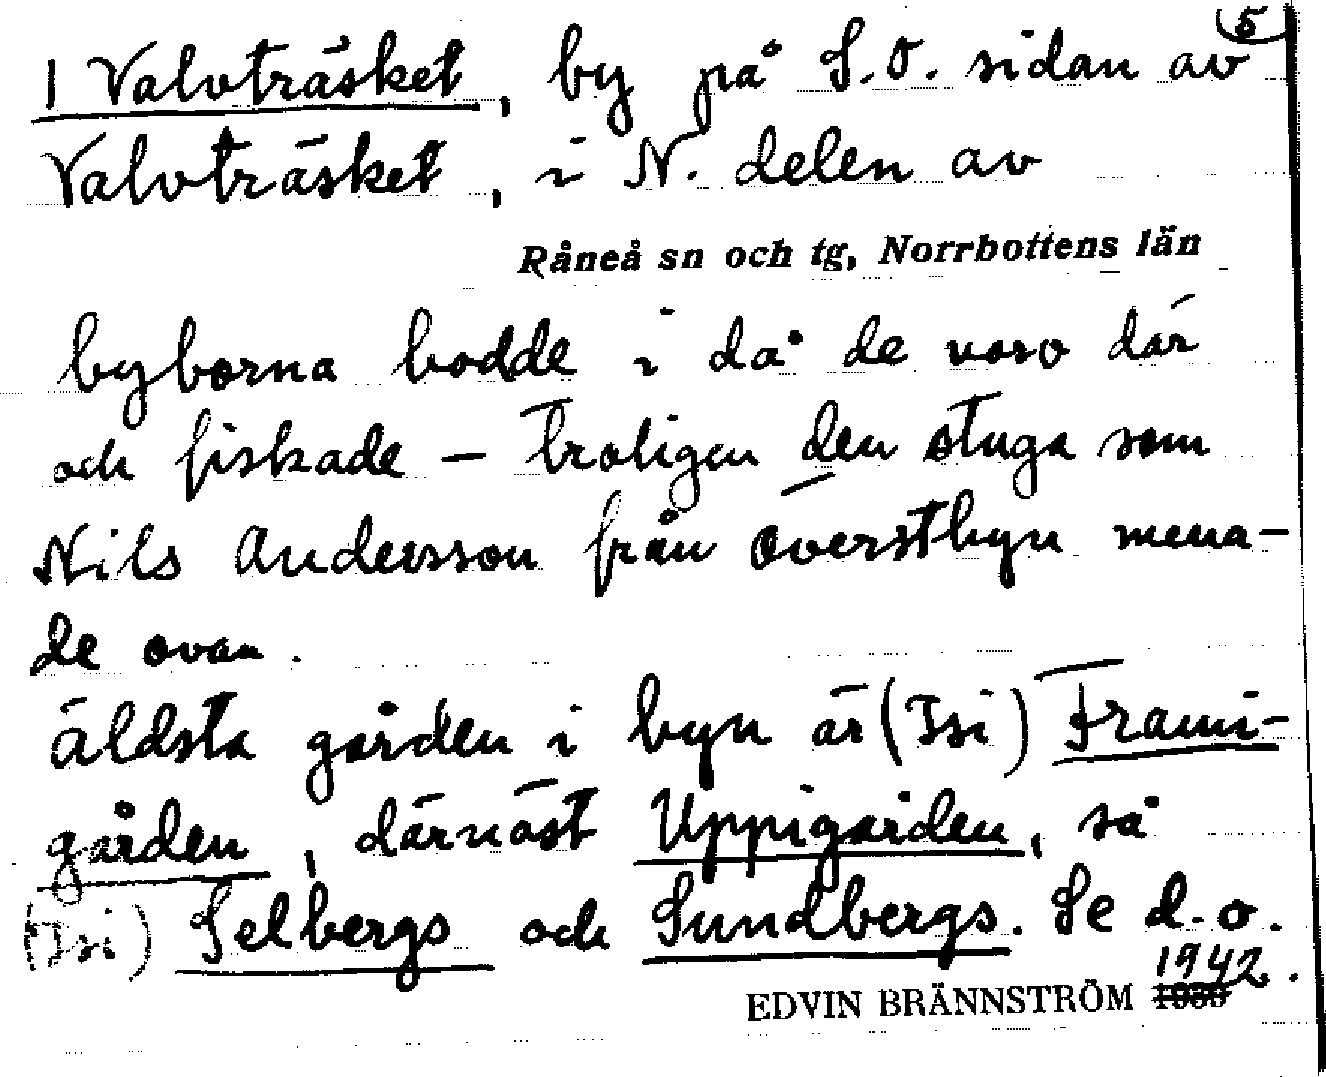 5
1 Valvträsket, by på S.O. sidan av
Valvträsket, i N. delen av
Råneå sn och tg, Norrbottens län
byborna bodde i då de voro där
och fiskade — troligen den stuga som
Nils Andersson från överstbyn mena-
de ovan.
äldsta gården i byn är (Isi) Frami-
gården, därnäst Uppigården, så
(Isi) Selbergs och Sundbergs. Se d.o.
EDVIN BRÄNNSTRÖM 1942.